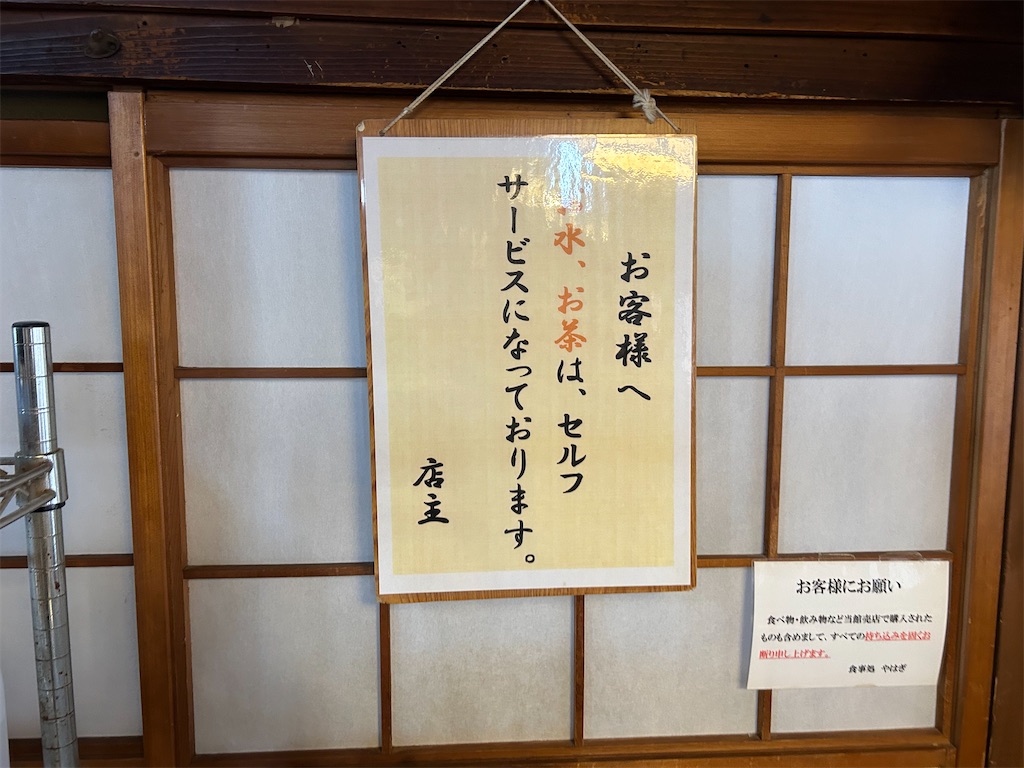 お客様へ
水、お茶は、セルフ
サービスになっております。
店主
お客様にお願い
食べ物・飲み物など当館売店で購入された
ものも含めまして、すべての持ち込みを固くお
断り申し上げます。
食事処 やはぎ